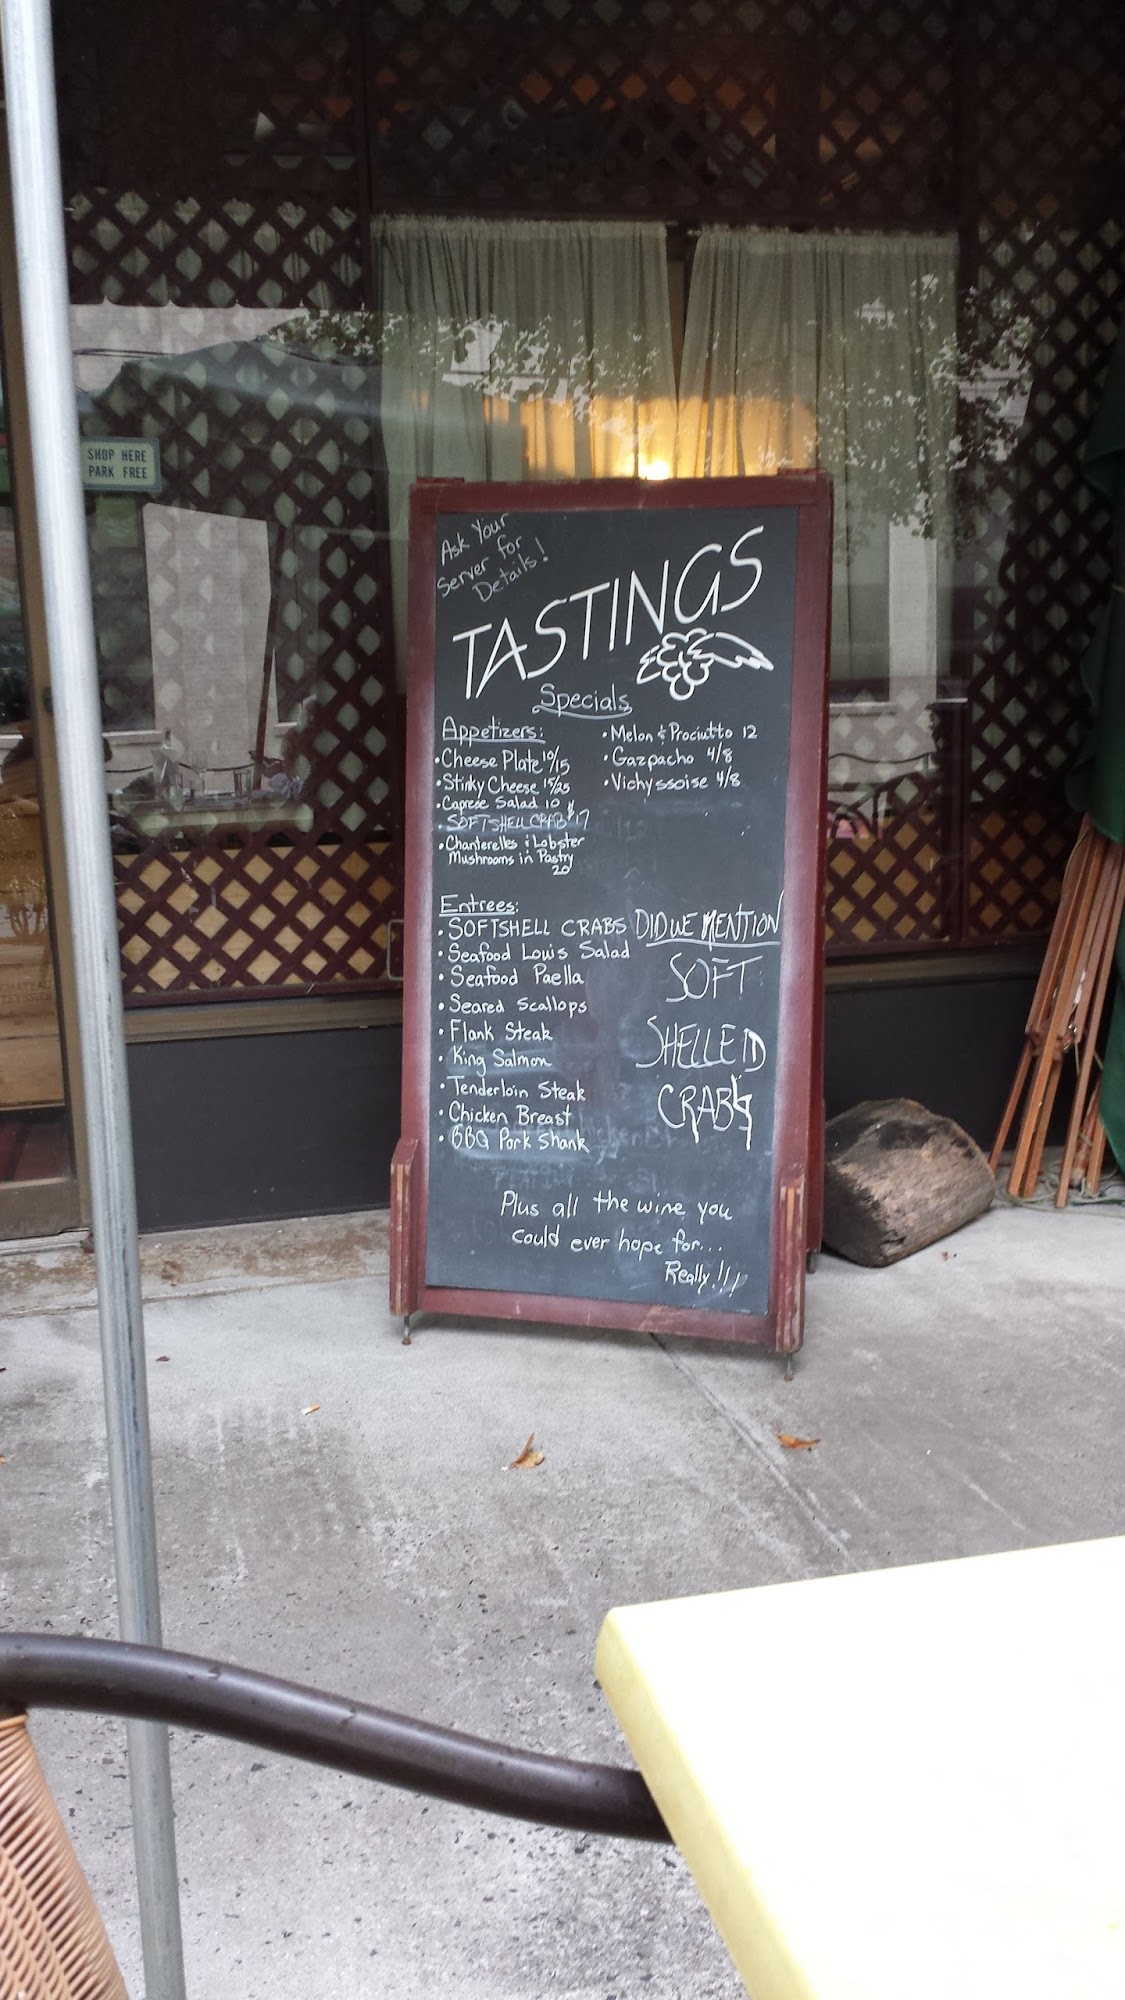 SHOP HERE
PARK FREE
Ask Your
Server for
Details!
TASTINGS
Specials
Appetizers:
• Cheese Plate 10/15
• Stinky Cheese 15/25
• Caprese Salad 10
• SOFTSHELL CRAB $17
• Chanterelles & Lobster
Mushrooms in Pastry
20
• Melon & Prociutto 12
• Gazpacho 4/8
• Vichyssoise 4/8
Entrees:
• SOFTSHELL CRABS
• Seafood Louis Salad
• Seafood Paella
• Seared Scallops
• Flank Steak
• King Salmon
• Tenderloin Steak
• Chicken Breast
• BBQ Pork Shank
DID WE MENTION
SOFT
SHELLED
CRABS
Plus all the wine you
could ever hope for...
Really!!!